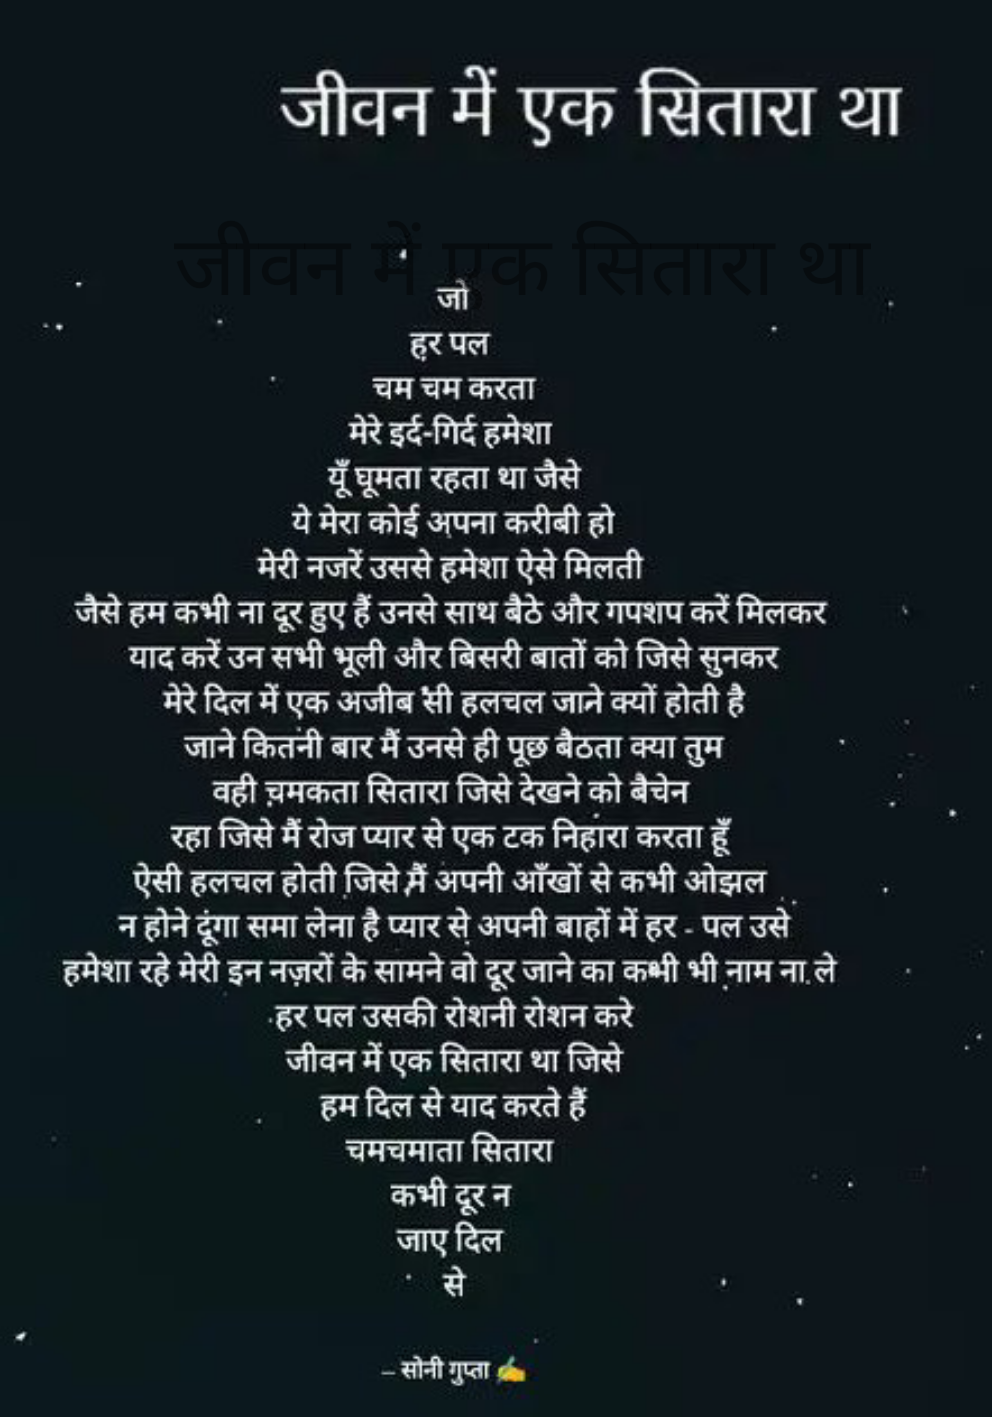 जीवन में एक सितारा था
जीवन में एक सितारा था
जो
हर पल
चम चम करता
मेरे इर्द-गिर्द हमेशा
यूँ घूमता रहता था जैसे
ये मेरा कोई अपना करीबी हो
मेरी नजरें उससे हमेशा ऐसे मिलती
जैसे हम कभी ना दूर हुए हैं उनसे साथ बैठे और गपशप करें मिलकर
याद करें उन सभी भूली और बिसरी बातों को जिसे सुनकर
मेरे दिल में एक अजीब सी हलचल जाने क्यों होती है
जाने कितनी बार मैं उनसे ही पूछ बैठता क्या तुम
वही चमकता सितारा जिसे देखने को बैचेन
रहा जिसे मैं रोज प्यार से एक टक निहारा करता हूँ
ऐसी हलचल होती जिसे मैं अपनी आँखों से कभी ओझल
न होने दूंगा समा लेना है प्यार से अपनी बाहों में हर - पल उसे
हमेशा रहे मेरी इन नज़रों के सामने वो दूर जाने का कभी भी नाम ना ले
हर पल उसकी रोशनी रोशन करे
जीवन में एक सितारा था जिसे
हम दिल से याद करते हैं
चमचमाता सितारा
कभी दूर न
जाए दिल
से
– सोनी गुप्ता ✍️